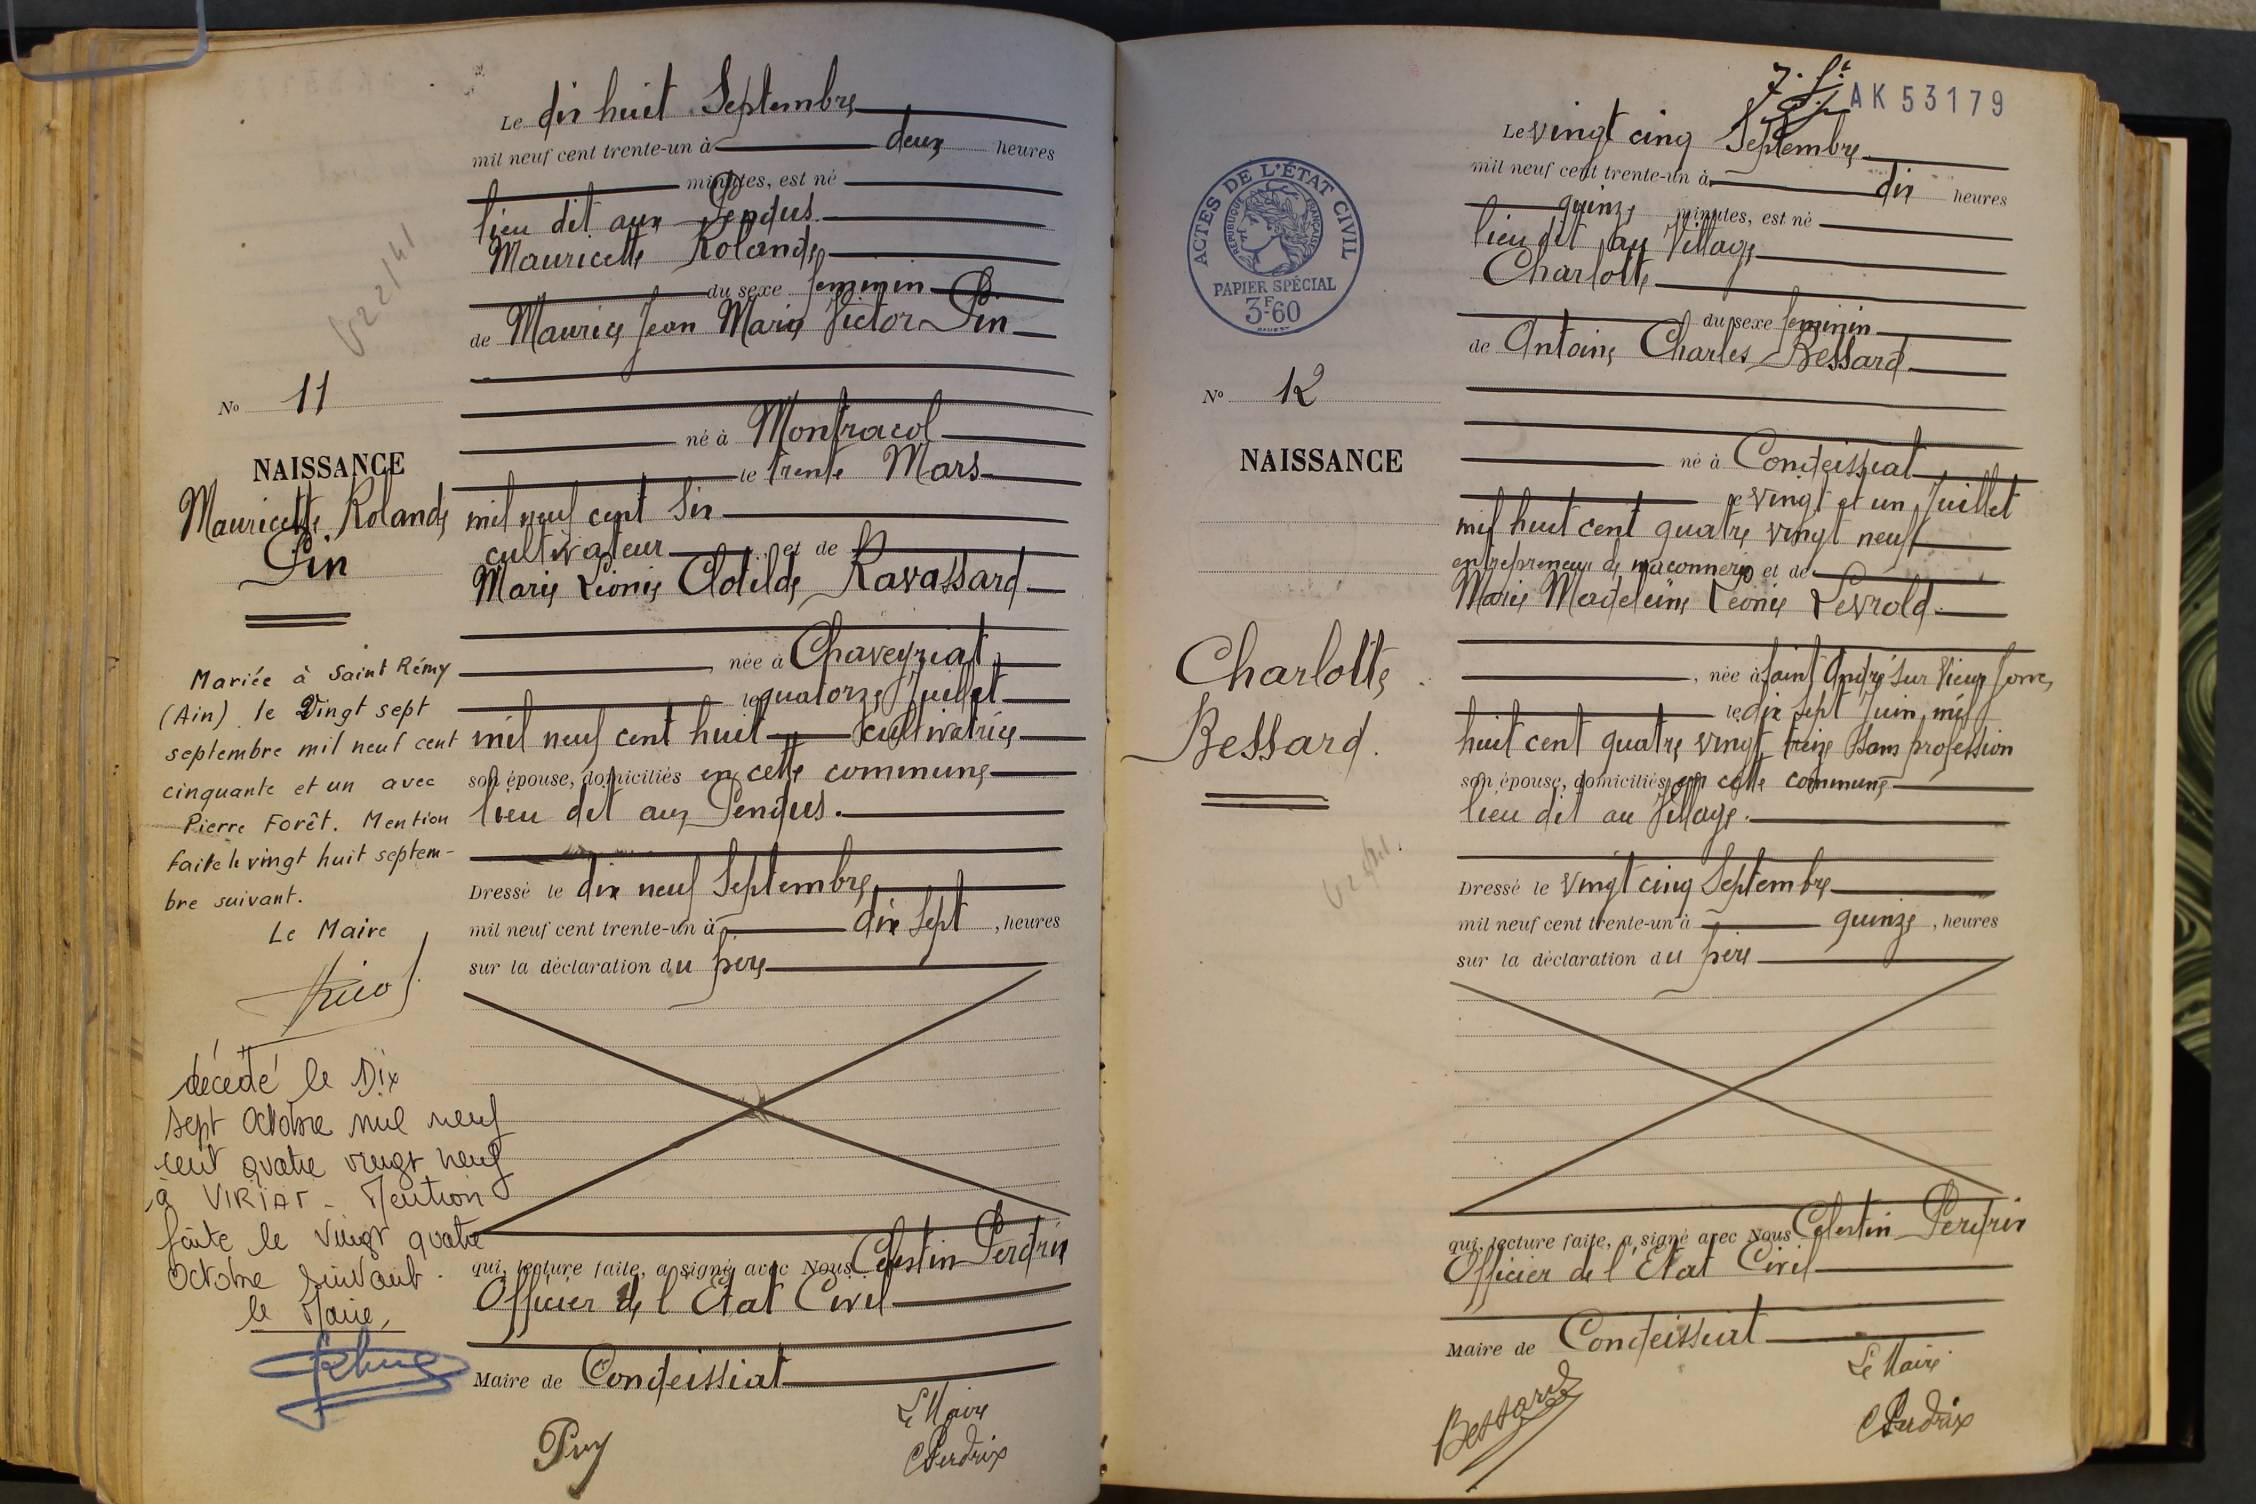 Le dix huit Septembre
mil neuf cent trente-un à deux heures
minutes, est né
lieu dit aux Pendus
Mauricette Rolande
du sexe feminin
de Maurice Jean Marie Victor Pin
né à Montracol
le trente Mars
mil neuf cent Six
cultivateur et de
Marie Léonie Clotilde Ravassard
née à Chaveyriat
le quatorze Juillet
mil neuf cent huit cultivatrice
son épouse, domiciliés en cette commune
lieu dit aux Pendus.
Dressé le dix neuf Septembre
mil neuf cent trente-un à dix sept, heures
sur la déclaration du père
qui, lecture faite, a signé avec Nous Celestin Perdrix
Officier de l'Etat Civil
Maire de Condeissiat
Le Maire
CPerdrix
No 11
NAISSANCE
Mauricette Rolande
Pin
Mariée à Saint Rémy
(Ain) le Vingt sept
septembre mil neuf cent
cinquante et un avec
Pierre Forêt. Mention
faite le vingt huit septem-
bre suivant.
Le Maire
décédé le Dix
sept Octobre mil neuf
cent quatre vingt neuf
à VIRIAT - Mention
faite le Vingt quatre
Octobre suivant.
le Maire,
AK 53179
Le vingt cinq Septembre
mil neuf cent trente-un à dix heures
quinze minutes, est né
lieu dit au Village
Charlotte
du sexe feminin
de Antoine Charles Bessard
né à Condeissiat
le vingt et un Juillet
mil huit cent quatre vingt neuf
entrepreneur de maçonnerie et de
Marie Madeleine Léonie Levrold
née à Saint André sur Vieux Jonc,
le dix sept Juin mil
huit cent quatre vingt treize sans profession
son épouse, domiciliés en cette commune
lieu dit au Village.
Dressé le vingt cinq Septembre
mil neuf cent trente-un à quinze, heures
sur la déclaration du père
qui, lecture faite, a signé avec Nous Celestin Perdrix
Officier de l'Etat Civil
Maire de Condeissiat
Bessard
Le Maire
CPerdrix
ACTES DE L'ÉTAT CIVIL
RÉPUBLIQUE FRANÇAISE
PAPIER SPÉCIAL
3F60
No 12
NAISSANCE
Charlotte
Bessard.